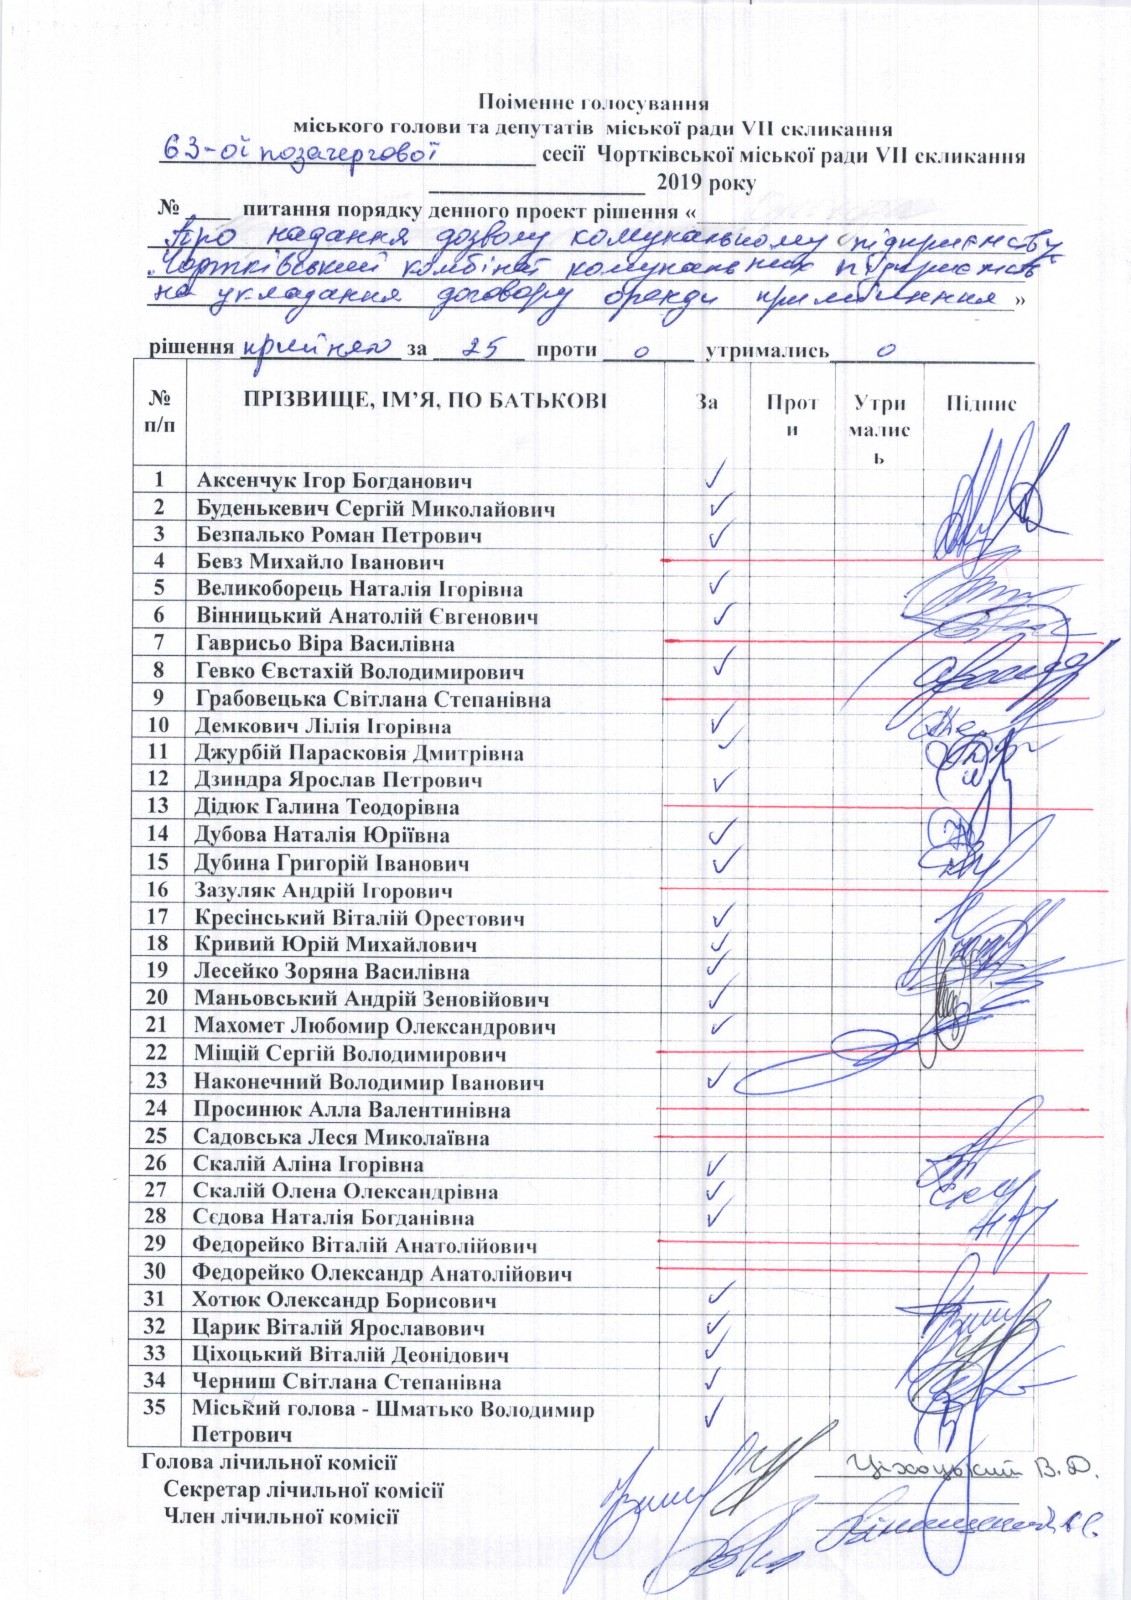 Поіменне голосування
міського голови та депутатів міської ради VII скликання
63-ої позачергової сесії Чортківської міської ради VII скликання
2019 року
№ ____ питання порядку денного проект рішення «
Про надання дозволу комунальному підприємству
Чортківський комбінат комунальних підприємств
на укладання договору оренди приміщення »
рішення прийнято за 25 проти 0 утримались 0
№ п/п ПРІЗВИЩЕ, ІМ’Я, ПО БАТЬКОВІ За Проти Утрималис ь Підпис
1 Аксенчук Ігор Богданович ✓
2 Буденькевич Сергій Миколайович ✓
3 Безпалько Роман Петрович ✓
4 Бевз Михайло Іванович
5 Великоборець Наталія Ігорівна ✓
6 Вінницький Анатолій Євгенович ✓
7 Гаврисьо Віра Василівна
8 Гевко Євстахій Володимирович ✓
9 Грабовецька Світлана Степанівна
10 Демкович Лілія Ігорівна ✓
11 Джурбій Парасковія Дмитрівна ✓
12 Дзиндра Ярослав Петрович ✓
13 Дідюк Галина Теодорівна
14 Дубова Наталія Юріївна ✓
15 Дубина Григорій Іванович ✓
16 Зазуляк Андрій Ігорович
17 Кресінський Віталій Орестович ✓
18 Кривий Юрій Михайлович ✓
19 Лесейко Зоряна Василівна ✓
20 Маньовський Андрій Зеновійович ✓
21 Махомет Любомир Олександрович ✓
22 Міщій Сергій Володимирович
23 Наконечний Володимир Іванович ✓
24 Просинюк Алла Валентинівна
25 Садовська Леся Миколаївна
26 Скалій Аліна Ігорівна ✓
27 Скалій Олена Олександрівна ✓
28 Сєдова Наталія Богданівна ✓
29 Федорейко Віталій Анатолійович
30 Федорейко Олександр Анатолійович
31 Хотюк Олександр Борисович ✓
32 Царик Віталій Ярославович ✓
33 Ціхоцький Віталій Деонідович ✓
34 Черниш Світлана Степанівна ✓
35 Міський голова - Шматько Володимир ✓
Петрович
Голова лічильної комісії Ціхоцький В.Д.
Секретар лічильної комісії
Член лічильної комісії